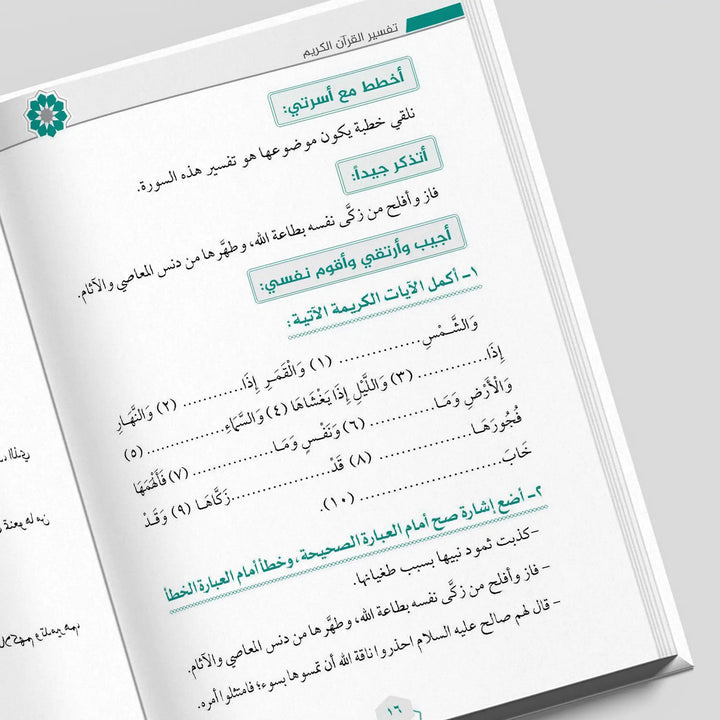 تفسير القرآن الكريم
أخطط مع أسرتي:
نلقي خطبة يكون موضوعها هو تفسير هذه السورة.
أتذكر جيداً:
فاز وأفلح من زكَّى نفسه بطاعة الله، وطهَّرها من دنس المعاصي والآثام.
أجيب وأرتقي وأقوم نفسي:
١- أكمل الآيات الكريمة الآتية:
وَالشَّمْسِ.............. (١) وَالْقَمَرِ إِذَا........... (٢) وَالنَّهَارِ
إِذَا............ (٣) وَاللَّيْلِ إِذَا يَغْشَاهَا (٤) وَالسَّمَاءِ.............. (٥)
وَالْأَرْضِ وَمَا............ (٦) وَنَفْسٍ وَمَا.............. (٧) فَأَلْهَمَهَا
فُجُورَهَا.............. (٨) قَدْ.................زَكَّاهَا (٩) وَقَدْ
خَابَ......................... (١٠).
٢- أضع إشارة صح أمام العبارة الصحيحة، وخطأ أمام العبارة الخطأ
-كذبت ثمود نبيها بسبب طغيانها.
- فاز وأفلح من زكَّى نفسه بطاعة الله، وطهَّرها من دنس المعاصي والآثام.
- قال لهم صالح عليه السلام احذروا ناقة الله أن تمسوها بسوء؛ فامتثلوا أمره.
١٦